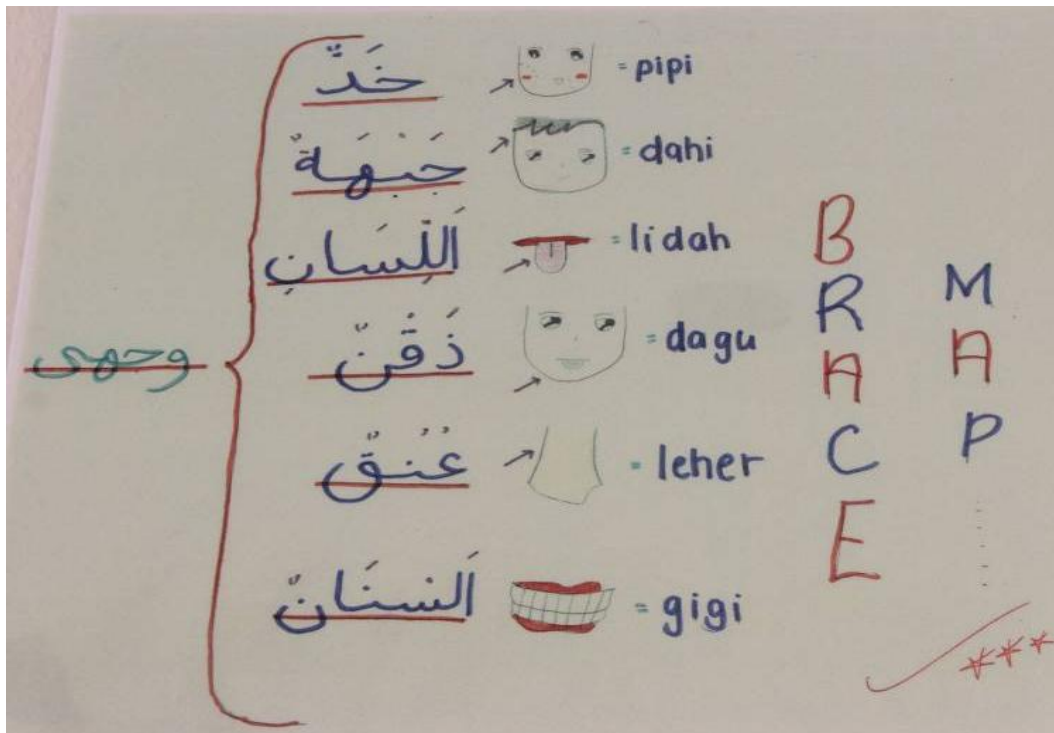 خَدٌّ = pipi
جَبْهَةٌ = dahi
اَللِّسَانِ = lidah
ذَقَنٌ = dagu
عُنُقٌ = leher
اَلسنَانٌ = gigi
وحهى
BRACE
MAP